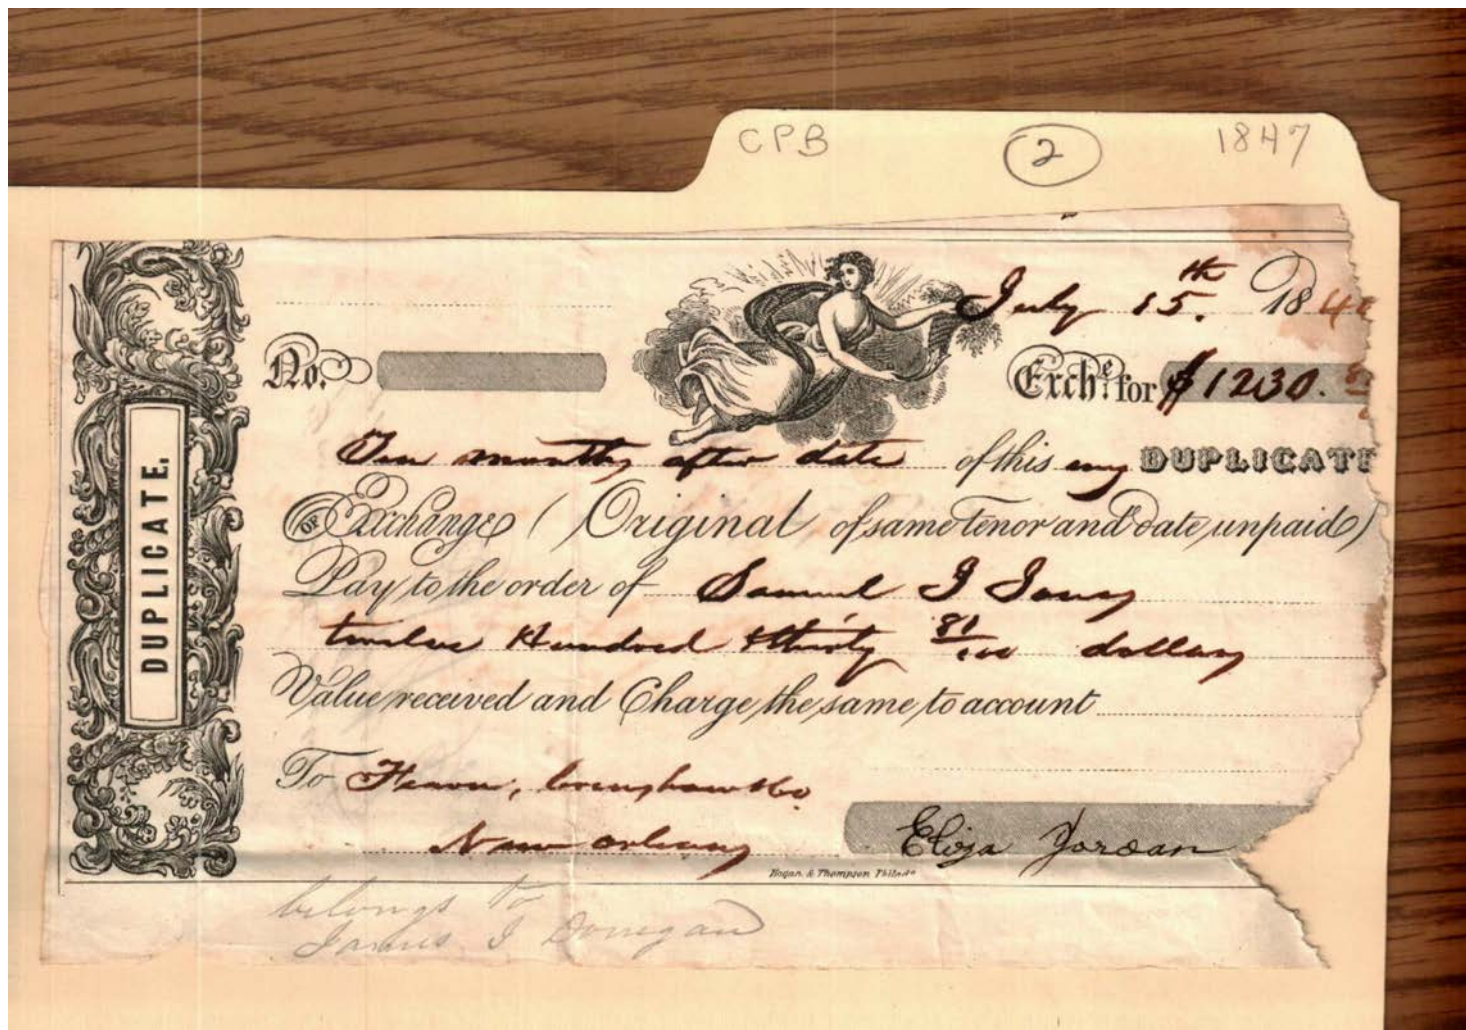 CPB 2 1847
July 15th. 184
No. Exche. for $1230.
Ten months after date of this my DUPLICATE
OF Exchange (Original of same tenor and date unpaid)
Pay to the order of Samuel I Jones
twelve Hundred & thirty 81/100 dollars
Value received and Charge the same to account
To Fearn, Crenshaw & Co.
New Orleans Elija Jordan
Hogan & Thompson Philada
belongs to
James I Donegan
DUPLICATE.